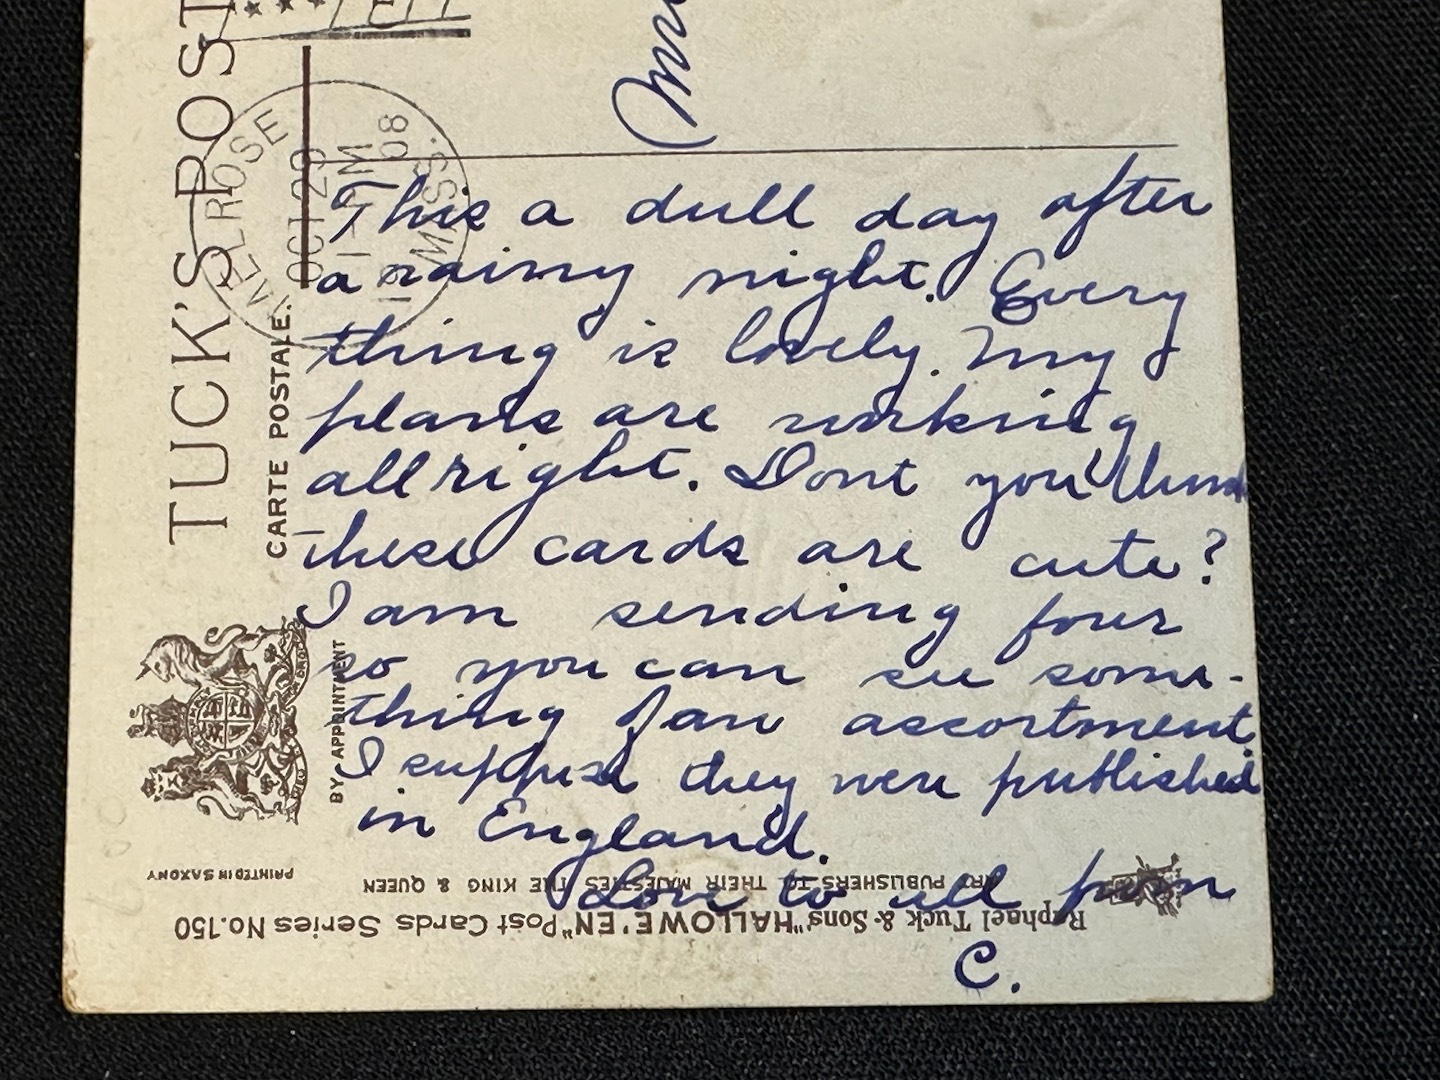 This a dull day after
a rainy night. Every
thing is lovely. My
plans are working
all right. Dont you think
these cards are cute?
I am sending four
so you can see some-
thing of an assortment.
I suppose they were published
in England.
Love to all from
C.
TUCK'S POST
CARTE POSTALE.
MELROSE
OCT 29
1-PM
1908
MASS.
BY APPOINTMENT
Raphael Tuck & Sons' "HALLOWE'EN" Post Cards Series No. 150
ART PUBLISHERS TO THEIR MAJESTIES THE KING & QUEEN
PRINTED IN SAXONY